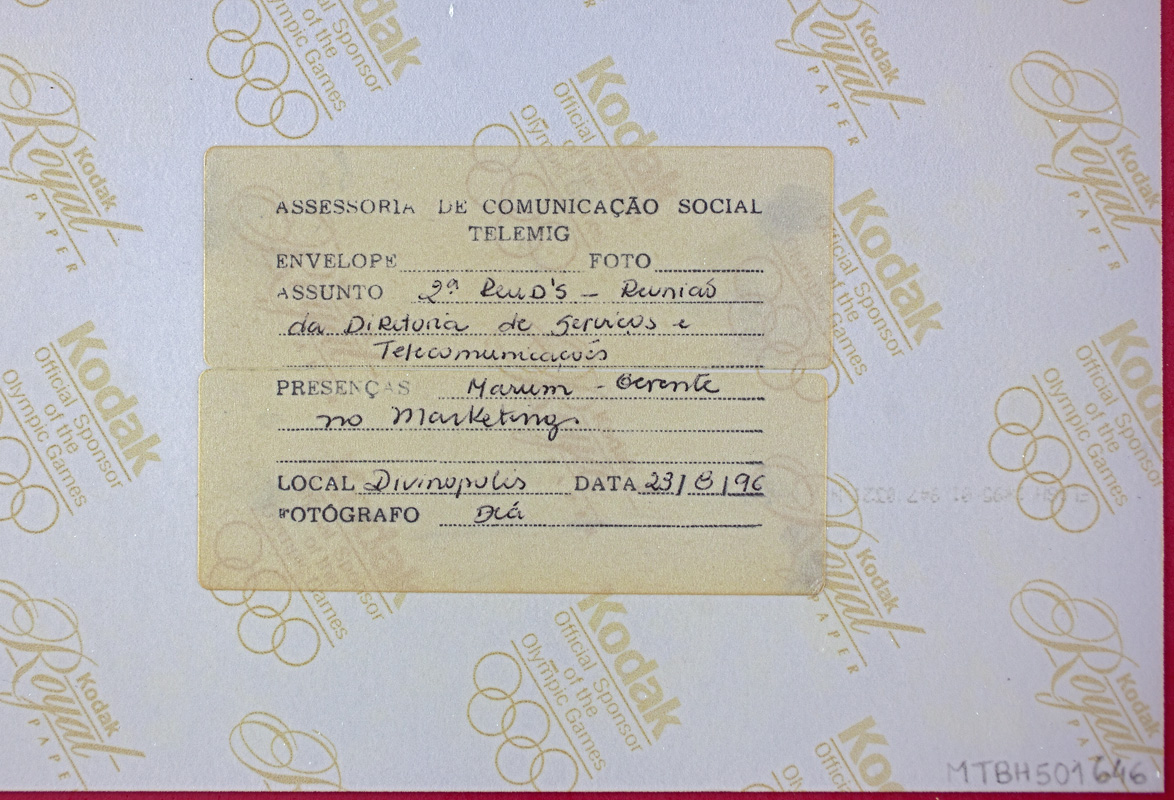 ASSESSORIA DE COMUNICAÇÃO SOCIAL
TELEMIG
ENVELOPE FOTO
ASSUNTO 2ª ReuD'S – Reunião
da Diretoria de Serviços e
Telecomunicações
PRESENÇAS Marum - Gerente
no Marketing.
LOCAL Divinopolis DATA 23/8/96
FOTÓGRAFO
MTBH501646
Kodak
Official Sponsor
of the
Olympic Games
Kodak
Royal
PAPER